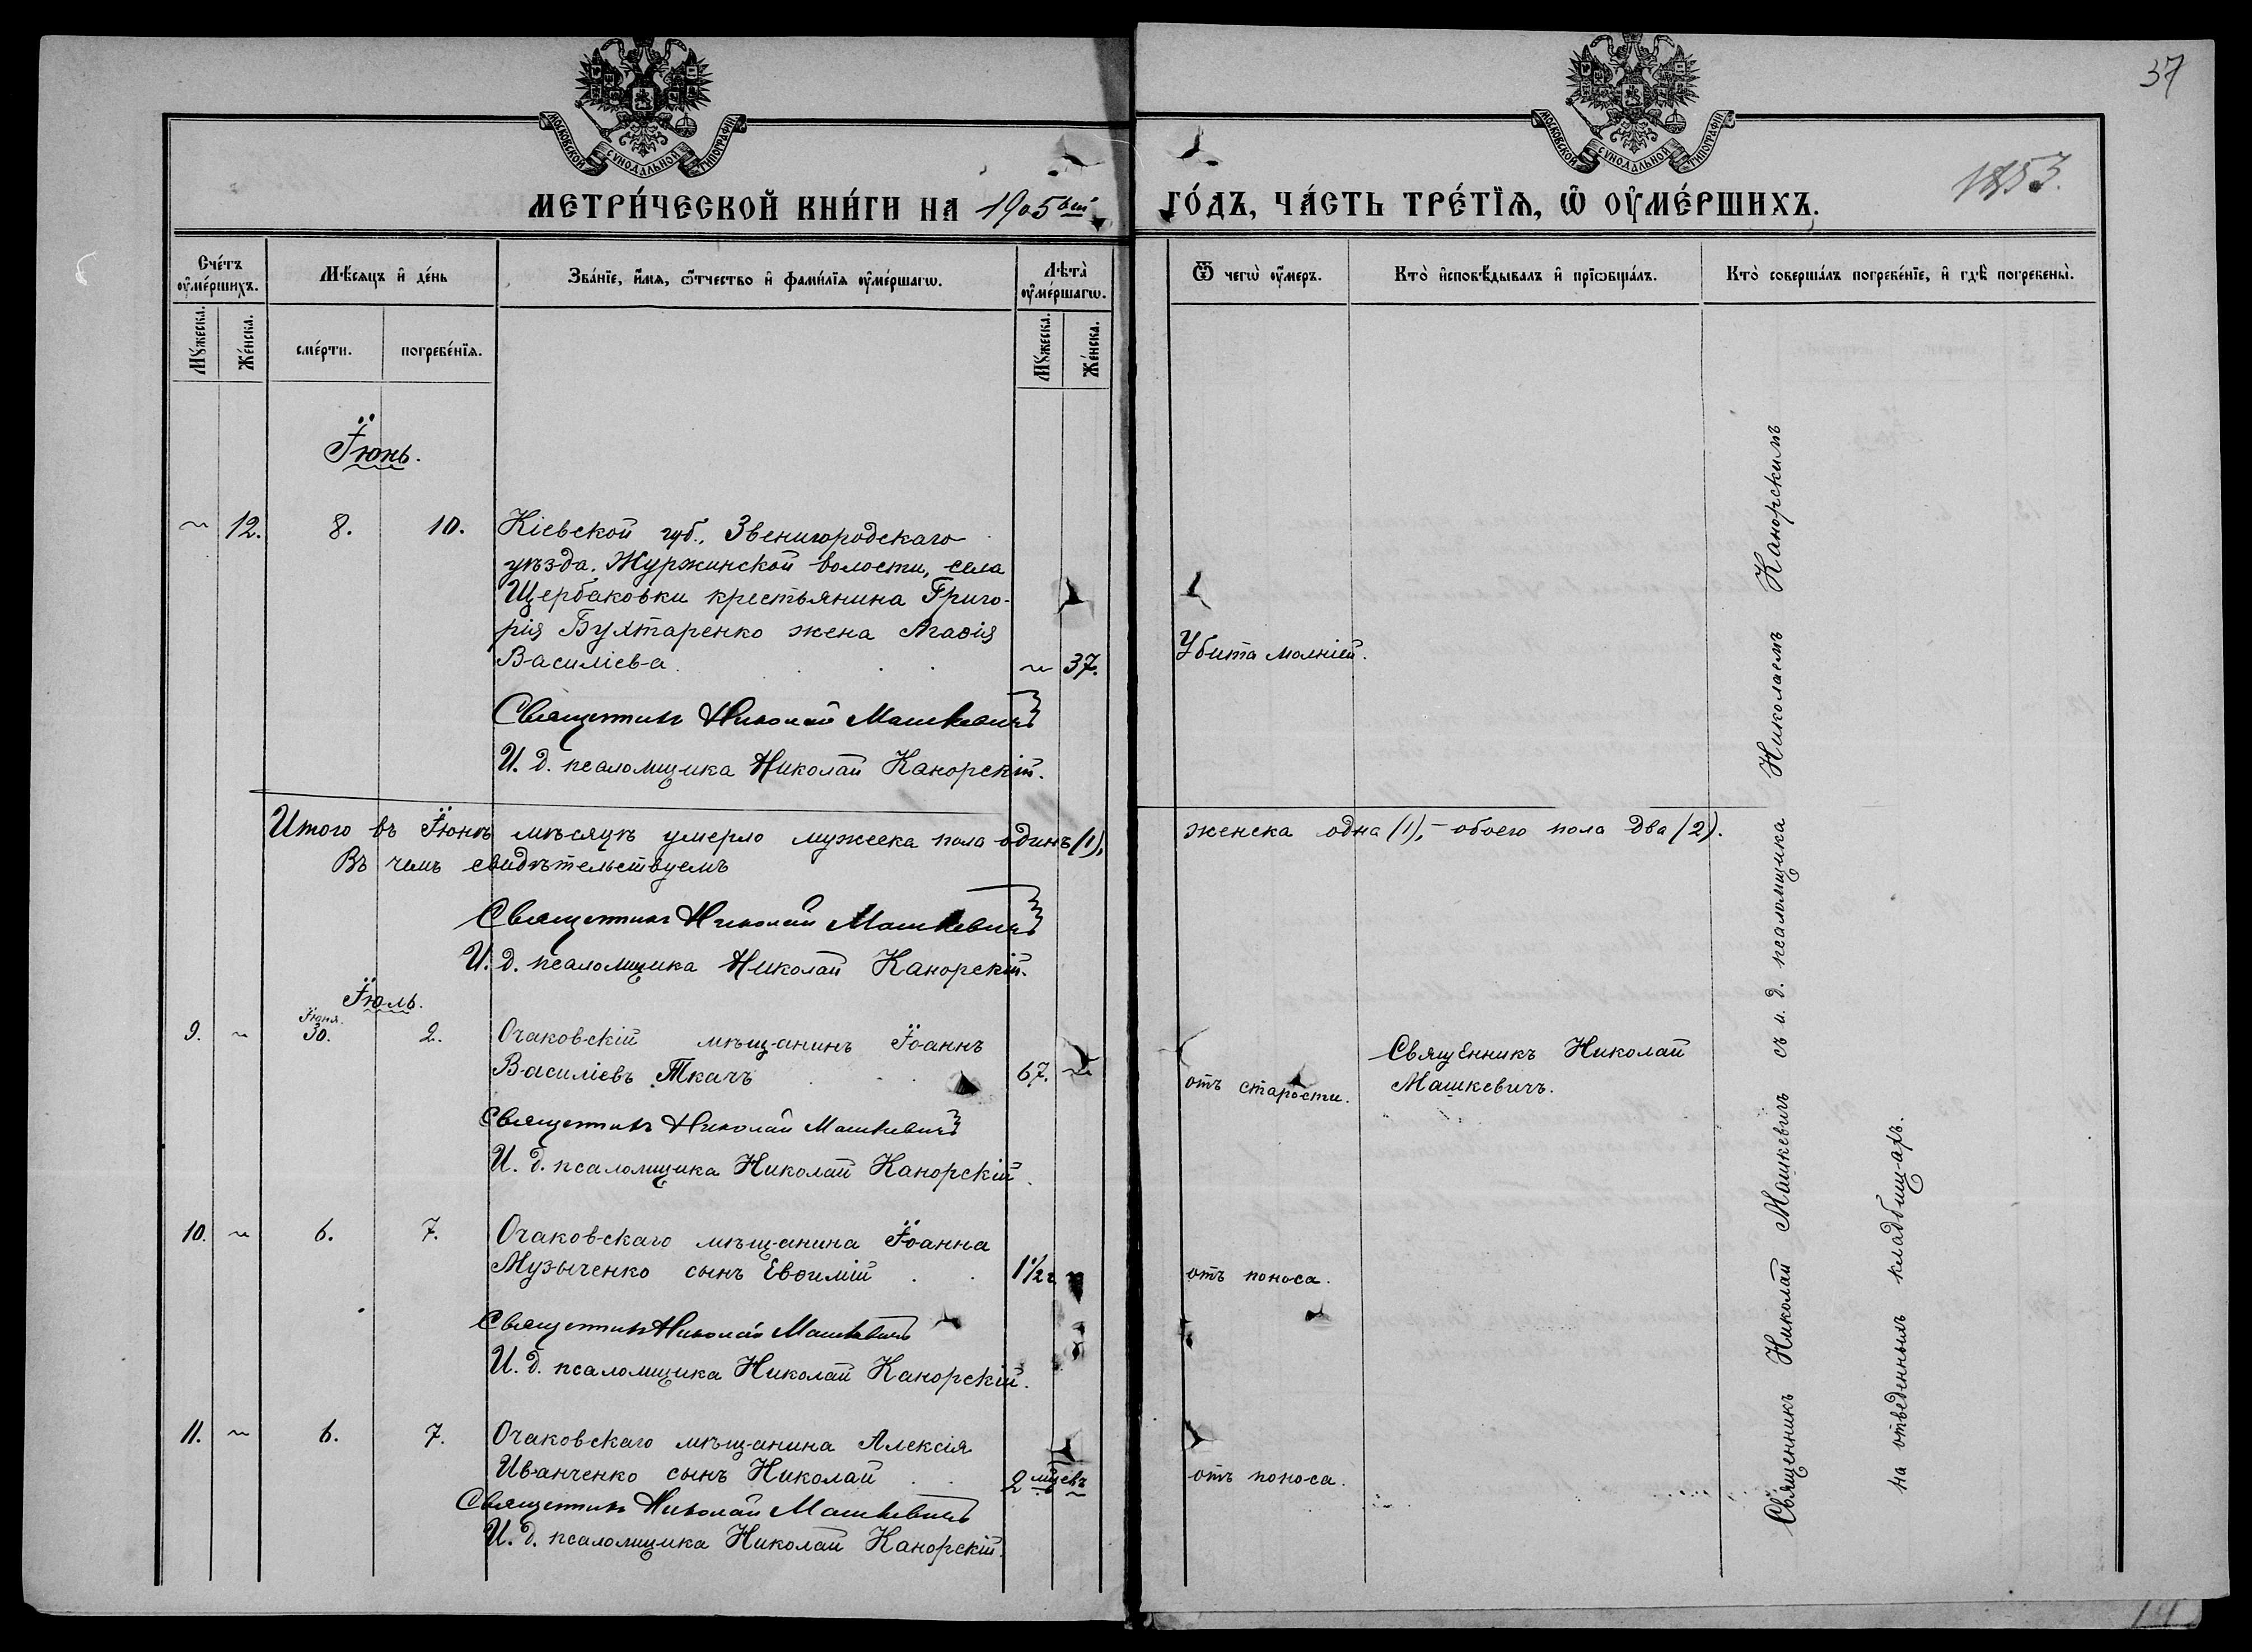 37
1853.
МОСКОВСКОЙ СУНОДАЛЬНОЙ ТИПОГРАФІИ
МОСКОВСКОЙ СУНОДАЛЬНОЙ ТИПОГРАФІИ
МЕТРИ́ЧЕСКОЙ КНИ́ГИ НА 1905ый ГО́ДЪ, ЧА́СТЬ ТРЕ́ТЇѦ, Ѡ ОУ҆МЕ́РШИХЪ.
Сче́тъ оу҆ме́ршихъ.
Мѣ́сяцъ и҆ де́нь
Зва́нїе, и҆́мѧ, ѻ҆́тчество и҆ фами́лїѧ оу҆ме́ршагѡ.
Лѣта̀ оу҆ме́ршагѡ.
Ѿ чегѡ̀ оу҆́меръ.
Кто̀ и҆сповѣ́дывалъ и҆ прїѡбща́лъ.
Кто̀ соверша́лъ погребе́нїе, и҆ гдѣ̀ погребены̀.
Мꙋ́жеска.
Же́нска.
сме́рти.
погребе́нїѧ.
Мꙋ́жеска.
Же́нска.
Їюнь.
~ 12. 8. 10. Кіевской губ., Звенигородскаго
уѣзда, Журжинской волости, села
Щербаковки крестьянина Григо-
рія Бухтаренко жена Агаѳія
Василіева. ~ 37. Убита молніей.
Священникъ Николай Машкевичъ
И. д. псаломщика Николай Канорскій.
Итого въ Їюнѣ мѣсяцѣ умерло мужеска пола одинъ (1), женска одна (1), – обоего пола два (2).
Въ чемъ свидѣтельствуемъ
Священникъ Николай Машкевичъ
И. д. псаломщика Николай Канорскій.
Їюль.
Їюня
9. ~ 30. 2. Очаковскій мѣщанинъ Їоаннъ
Василіевъ Ткачъ 67. ~ отъ старости. Священникъ Николай
Машкевичъ.
Священникъ Николай Машкевичъ
И. д. псаломщика Николай Канорскій.
10. ~ 6. 7. Очаковскаго мѣщанина Їоанна
Музыченко сынъ Евѳимій 1½ г. отъ поноса.
Священникъ Николай Машкевичъ
И. д. псаломщика Николай Канорскій.
11. ~ 6. 7. Очаковскаго мѣщанина Алексія
Иванченко сынъ Николай 2 мцевъ ~ отъ поноса.
Священникъ Николай Машкевичъ
И. д. псаломщика Николай Канорскій.
Священникъ Николай Машкевичъ съ и. д. псаломщика Николаемъ Канорскимъ
на отведенныхъ кладбищахъ.